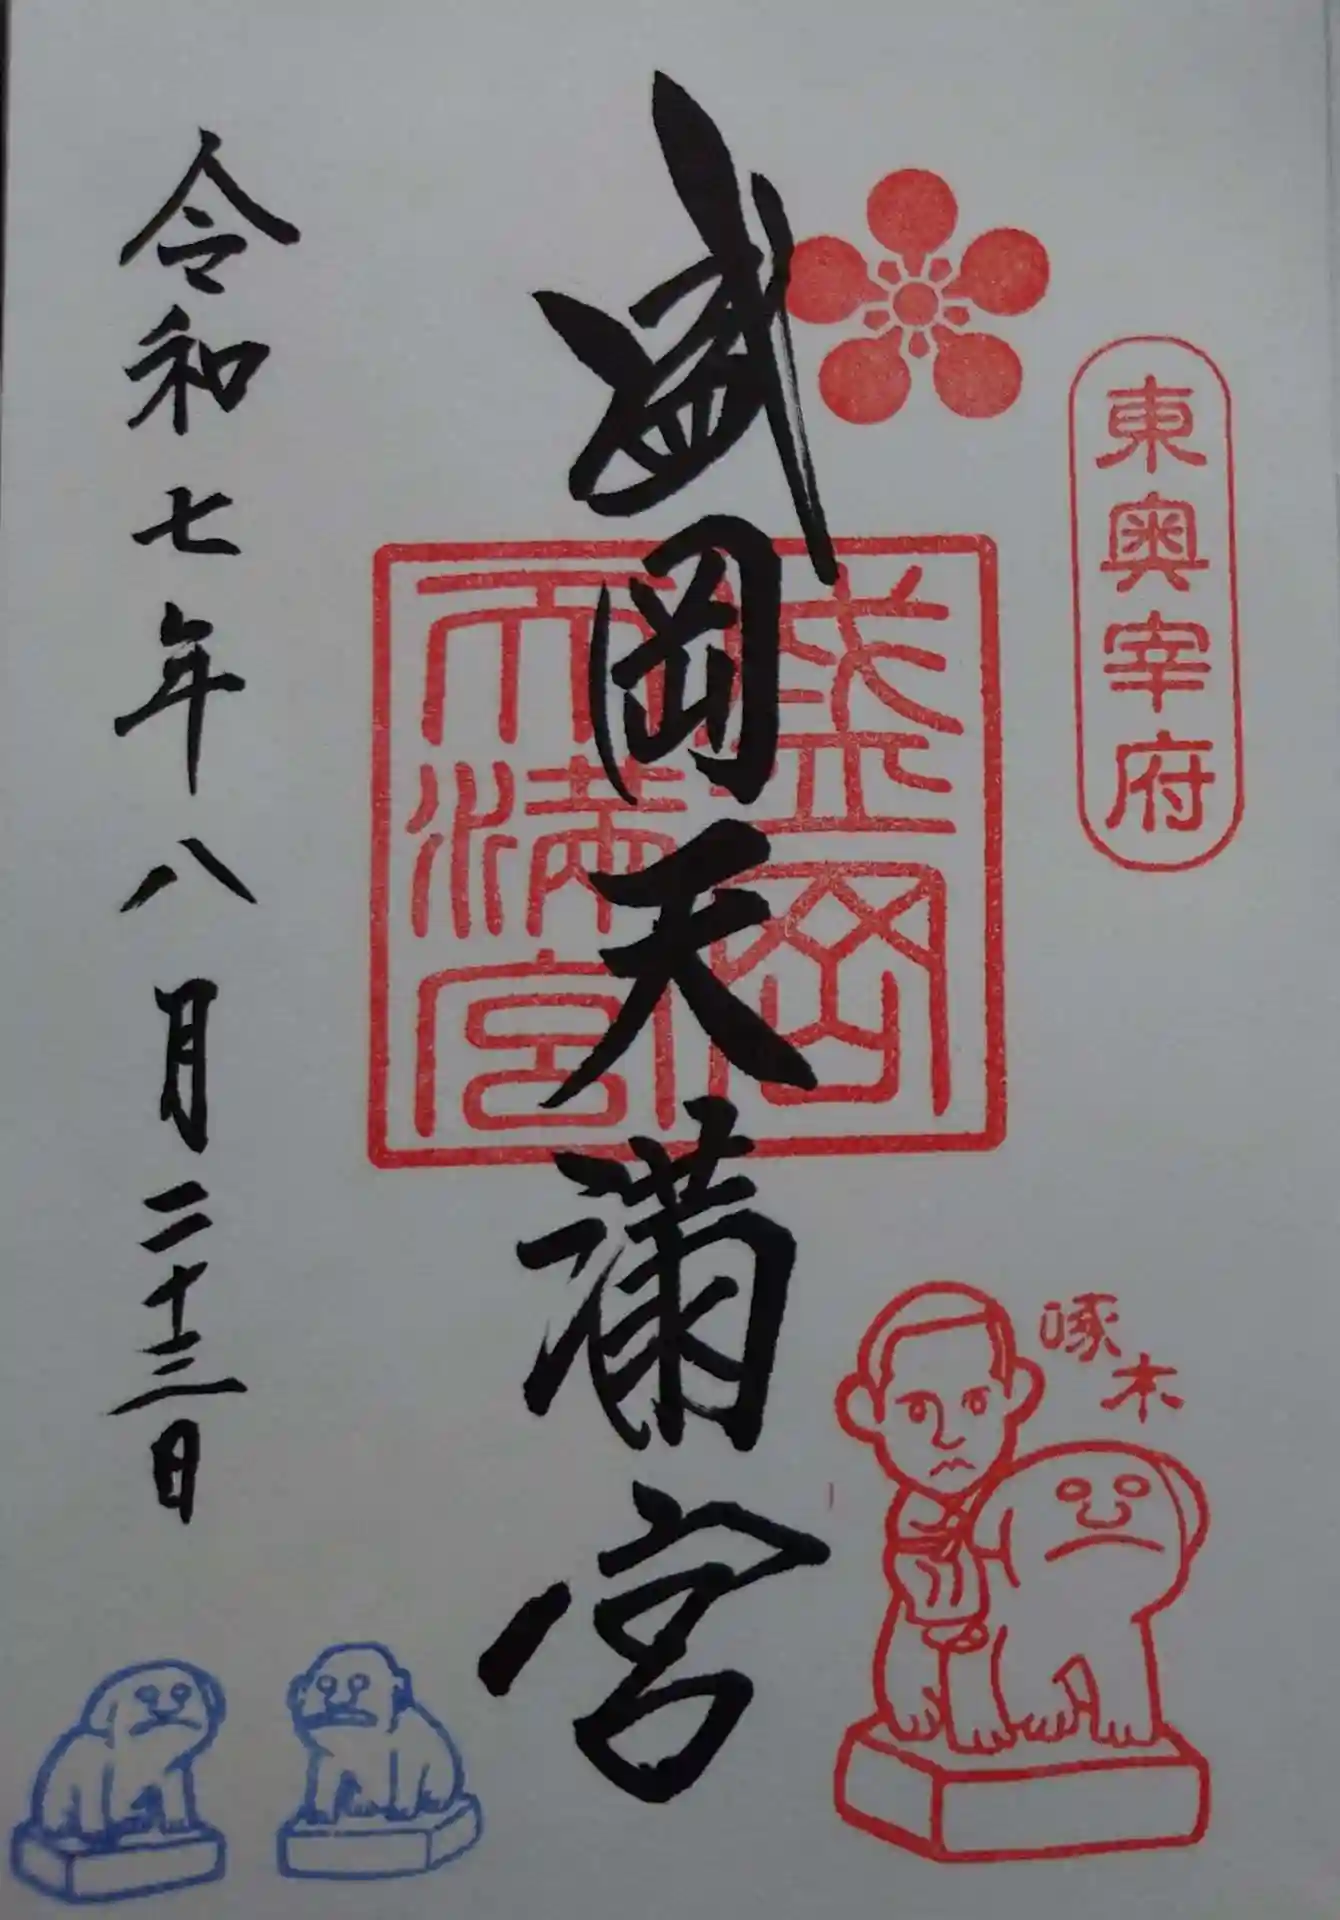 東奥宰府
盛岡天満宮
盛岡
天満宮
啄木
令和七年八月二十三日